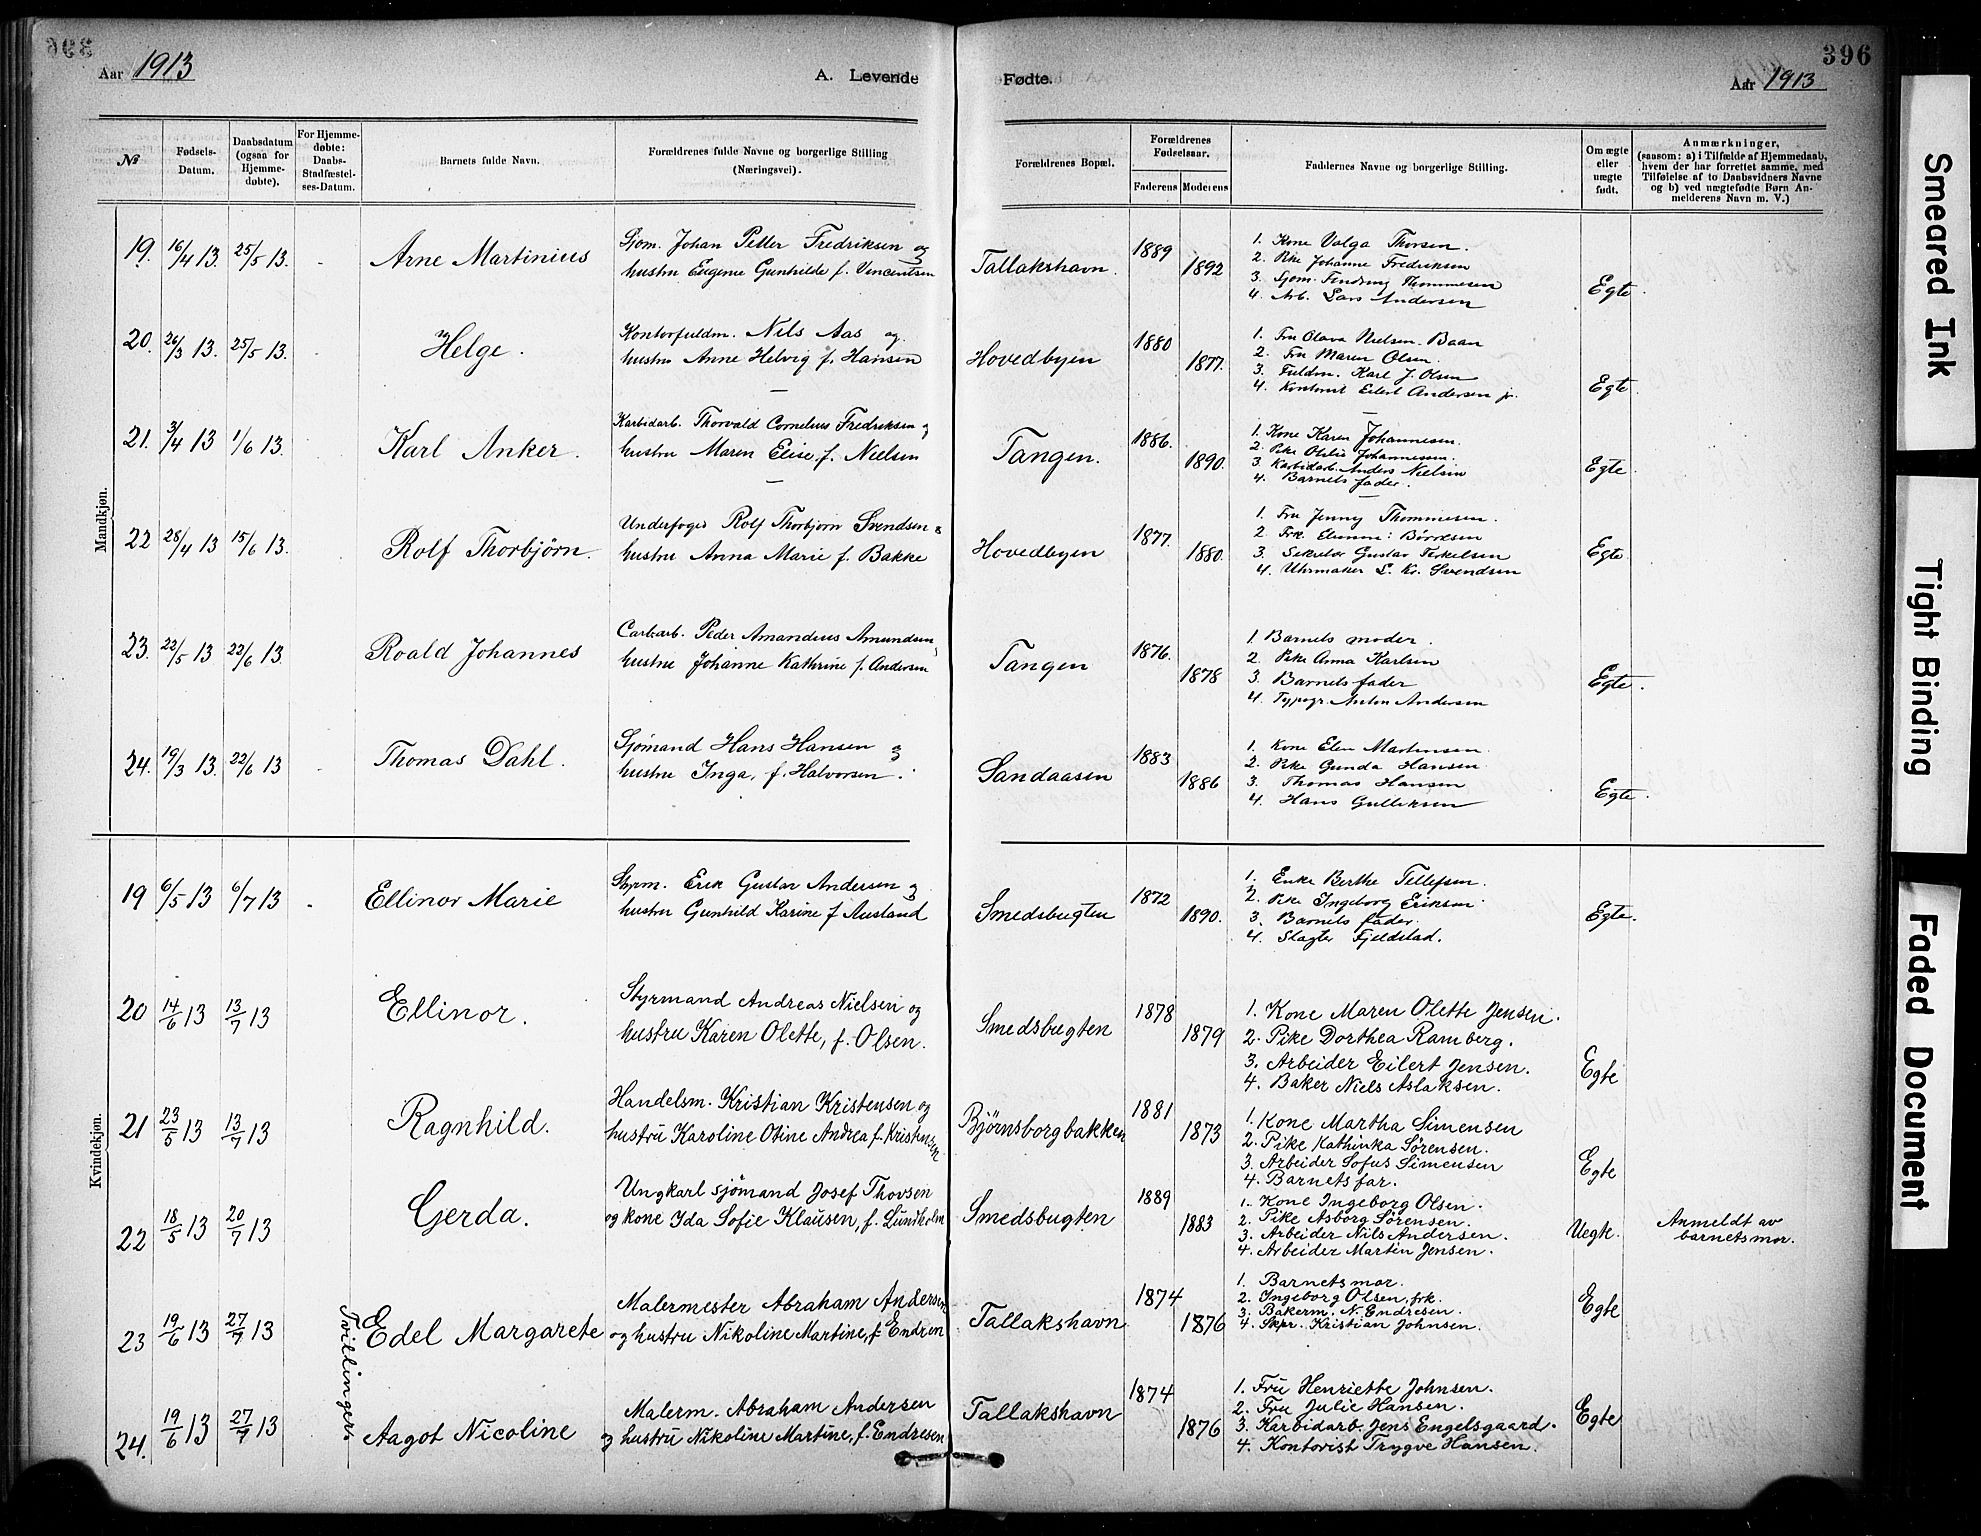 396
Aar 1913
A. Levende
Fødte.
Aar 1913
№
Fødsels-Datum.
Daabsdatum (ogsaa for Hjemme-døbte).
For Hjemme-døbte: Daabs-Stadfæstel-ses-Datum.
Barnets fulde Navn.
Forældrenes fulde Navne og borgerlige Stilling (Næringsvei).
Forældrenes Bopæl.
Forældrenes Fødselsaar.
Faderens
Moderens
Faddernes Navne og borgerlige Stilling.
Om ægte eller uægte født.
Anmærkninger,
(saasom: a) i Tilfælde af Hjemmedaab,
hvem der har forrettet samme, med
Tilføielse af to Daabsvidners Navne
og b) ved uægtefødte Børn An-
melderens Navn m. V.)
Mandkjøn.
19. 16/4 13. 25/5 13. Arne Martinius
Sjom. Johan Petter Fredriksen og
hustru Eugenie Gunhilde f. Vincentsen
Tallakshavn. 1889 1892
1. Kone Valga Thorsen.
2. Pke Johanne Fredriksen
3. Sjom. Thommesen
4. Arb. Lars Andersen
Egte.
20. 26/3 13. 25/5 13. Helge.
Kontorfuldm. Nils Aas og
hustru Anne Helvig f. Hansen
Hovedbyen 1880 1877.
1. Fru Olava Nielsen-Baan
2. Fru Maren Olsen.
3. Fuldm. Karl J. Olsen
4. Kontorist Eilert Andersen jr.
Egte
21. 3/4 13 1/6 13. Karl Anker.
Karbidarb. Thorvald Cornelius Fredriksen og
hustru Maren Elise f. Nielsen
Tangen. 1886. 1890.
1. Kone Karen Johannesen.
2. Pke Otelie Johannesen.
3. Karbidarb. Anders Nielsen
4. Barnets fader.
Egte.
22 28/4 13 15/6 13. Rolf Thorbjörn.
Underfoged Rolf Thorbjorn Svendsen &
hustru Anna Marie f. Bakke
Hovedbyen 1877. 1880.
1. Fru Jenny Thommesen.
2 Frk Børresen
3. Sekretær Gustav Terkelsen
4. Uhrmaker L. Kr. Svendsen
Egte
23. 22/5 13 22/6 13. Roald Johannes
Carbarb. Peder Amandius Amundsen
hustru Johanne Kathrine f. Andersen
Tangen 1876. 1878
1. Barnets moder.
2. Pike Anna Karlsen
3. Barnets fader
4. Typogr. Anton Andersen
Egte.
24. 19/3 13. 22/6 13 Thomas Dahl.
Sjömand Hans Hansen og
hustru Inga, f. Halvorsen.
Sandaasen 1883 1886
1. Kone Elen Martinsen.
2. Pke Gunda Hansen
3. Thomas Hansen
4. Hans Gulliksen
Egte.
Kvindekjøn.
19 6/5 13 6/7 13 Ellinor Marie
Styrm. Erik Gustav Andersen og
hustru Gunhild Karine f Austand
Smedsbugten 1872 1890.
1. Enke Berthe Tellefsen.
2. Pke Ingeborg Eriksen.
3. Barnets fader.
4. Slagter Fjeldstad.
Egte.
20 14/6 13 13/7 13 Ellinor.
Styrmand Andreas Nielsen og
hustru Karen Olette, f. Olsen.
Smedsbugten 1878 1879
1. Kone Maren Olette Jensen.
2. Pike Dorthea Ramberg.
3. Arbeider Eilert Jensen.
4. Baker Niels Aslaksen.
Egte
21 23/5 13 13/7 13 Ragnhild.
Handelsm. Kristian Kristensen og
hustru Karoline Otine Andrea f. Kristensen
Bjørnsborgbakken 1881 1873
1. Kone Martha Simensen
2. Pike Kathinka Sørensen.
3. Arbeider Sofus Simensen
4. Barnets far.
Egte
22 18/5 13 20/7 13 Gerda.
Ungkarl sjömand Josef Thovsen
og kone Ida Sofie Klausen, f. Lundholm
Smedsbugten 1889 1883
1. Kone Ingeborg Olsen.
2. Pike Asborg Sørensen.
3. Arbeider Nils Andersen.
4. Arbeider Martin Jensen.
Uegte.
Anmeldt av
barnets mor.
Tvillinger.
23 19/6 13 27/7 13 Edel Margarete
Malermester Abraham Andersen
og hustru Nikoline Martine, f. Endresen
Tallakshavn 1874 1876
1. Barnets mor.
2. Ingeborg Olsen, frk.
3. Bakerm. N. Endresen.
4. Skpr. Kristian Johnsen.
Egte
24. 19/6 13 27/7 13 Aagot Nicoline
Malerm. Abraham Andersen
og hustru Nikoline Martine, f. Endresen
Tallakshavn 1874 1876
1. Fru Henriette Johnsen.
2. Fru Julie Hansen.
3. Karbidarb. Jens Engelsgaard.
4. Kontorist Trygve Hansen.
Egte
Smeared Ink
Tight Binding
Faded Document